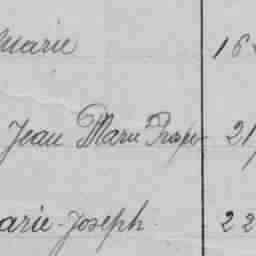 Marie 16
Jean Marie Prosper 21
arie-Joseph 22